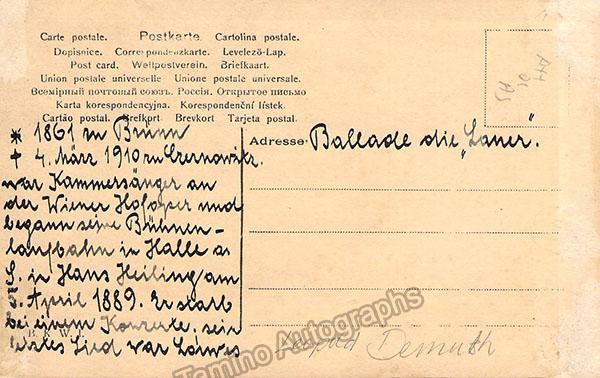 Carte postale. Postkarte. Cartolina postale.
Dopisnice. Correspondenzkarte. Levelező-Lap.
Post card. Weltpostverein. Briefkaart.
Union postale universelle Unione postale universale.
Всемірный почтовый союзъ. Россія. Открытое письмо
Karta korespondencyjna. Korespondenční lístek.
Cartão postal. Brefkort. Brevkort Tarjeta postal.
* 1861 zu Brünn
† 4. März 1910 zu Czernowitz.
war Kammersänger an
der Wiener Hofoper und
begann seine Bühnen-
laufbahn in Halle a
S. in Hans Heiling am
April 1889. Er starb
bei einem Konzerte. sein
letztes Lied war Löwes
Adresse: Ballade die „Lauer".
Leopold Demuth
Tamino Autographs